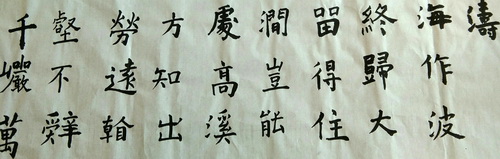 千巖萬
壑不辭
勞遠看
方知出
處高溪
澗豈能
留得住
終歸大
海作波
濤